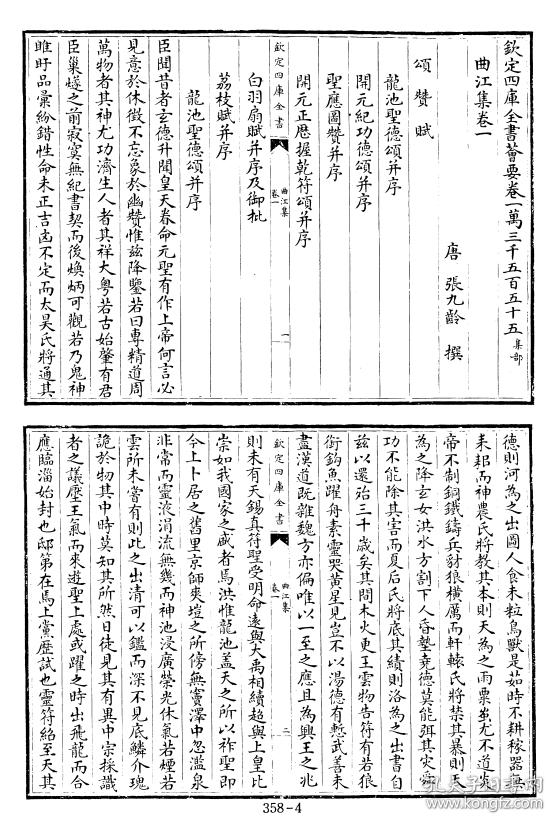 欽定四庫全書薈要卷一萬三千五百五十五集部
曲江集卷一
唐 張九齡 撰
頌 贊 賦
龍池聖德頌并序
開元紀功德頌并序
聖應圖贊并序
開元正厯握乾符頌并序
欽定四庫全書
曲江集
卷一
一
白羽扇賦并序及御批
荔枝賦并序
龍池聖德頌并序
臣聞昔者玄德升聞皇天眷命元聖有作上帝何言必
見意於休徵不忘象於幽贊惟兹降鑒若曰專精道周
萬物者其神尤功濟生人者其祥大粤若古始肇有君
臣巢燧之前寂寞無紀書契而後煥炳可觀若乃鬼神
睢盱品彚紛錯性命未正吉凶不定而太昊氏將通其
德則河為之出圖人食未粒鳥獸是茹時不耕稼器無
耒耜而神農氏將教其本則天為之雨粟蚩尤不道炎
帝不制銅鐵鑄兵豺狼横厲而軒轅氏將禁其暴則天
為之降玄女洪水方割下人昏墊堯德莫能弭其災舜
功不能除其害而夏后氏將底其績則洛為之出書自
兹以還殆三千歲矣其間木火更王雲物告符有若狼
銜鈎魚躍舟素靈哭黄星見豈不以湯德有慙武善未
盡漢道既雜魏方亦偏唯以一至之應且為興王之兆
欽定四庫全書
曲江集
卷一
二
則未有天錫真符聖受明命遠與大禹相續超與上皇比
崇如我國家之盛者焉洪惟龍池蓋天之所以祚聖即
今上卜居之舊里京師爽塏之所傍無竇澤中忽濫泉
非常而靈液涓流無幾而神池浸廣榮光休氣若煙若
雲所未嘗有則此之出清可以鑑而深不見底鱗介瓌
詭於物其中時莫知其所然日徒見其有異中宗採識
者之議壓王氣而來遊聖上處或躍之時出飛龍而合
應臨淄始封也邸第在焉上黨歷試也靈符紿至天其
358-4
孔夫子旧书网
www.kongfz.com